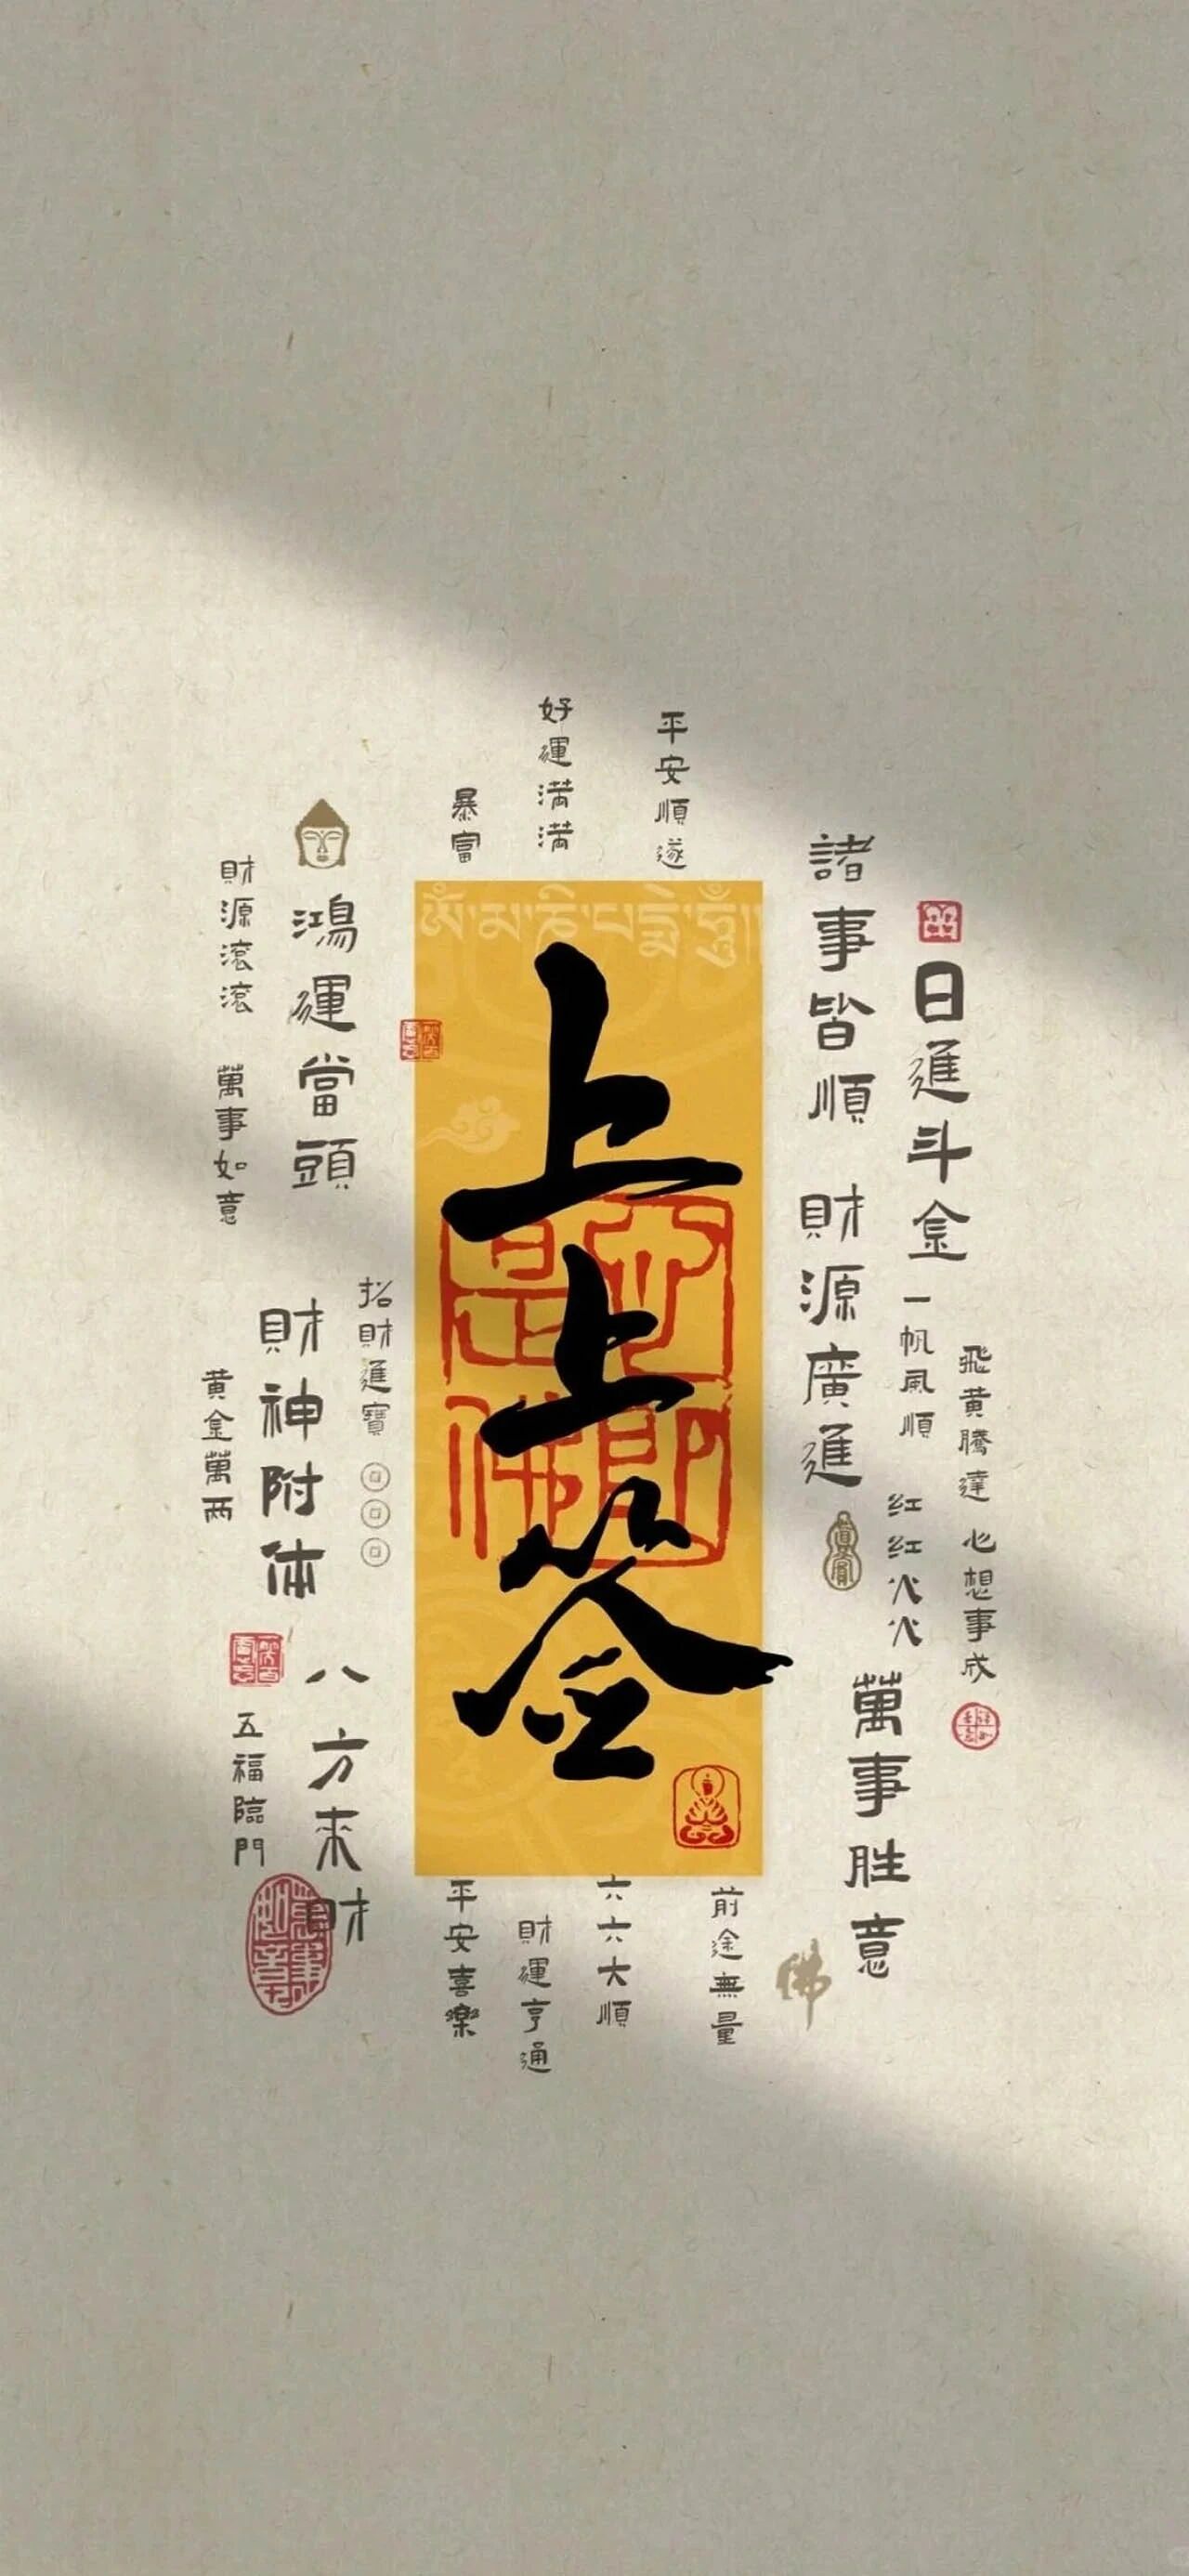 好運满满
平安順遂
暴富
諸事皆順
財源廣進
日進斗金
一帆風順
红红火火
飛黄騰達
心想事成
萬事胜意
財源滚滚
萬事如意
鴻運當頭
招財進寶
財神附体
黄金萬两
八方来財
五福臨門
ༀ་མ་ཎི་པདྨེ་ཧཱུྃ།
上上签
心即是佛
平安喜樂
財運亨通
六六大順
前途無量
佛